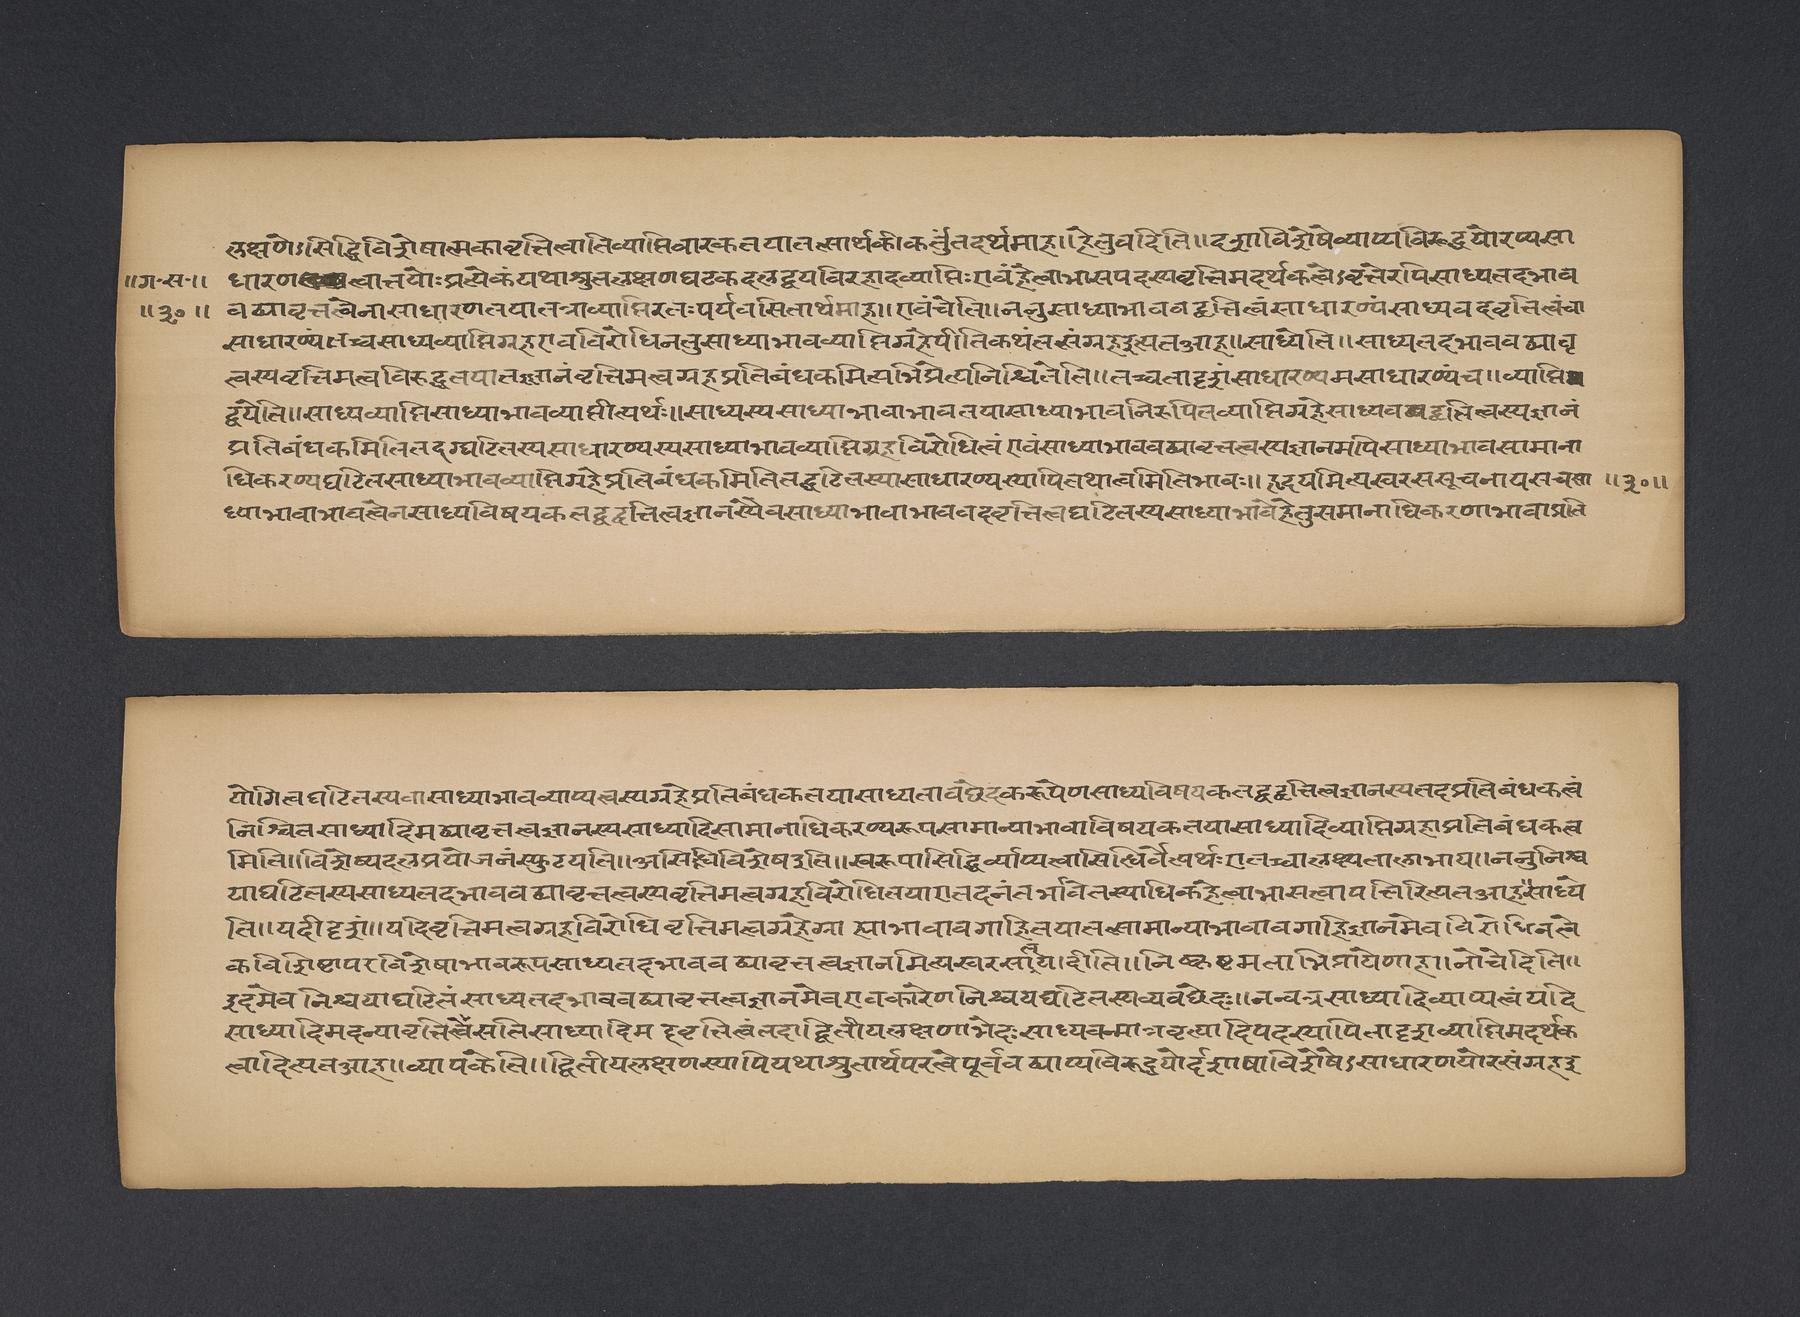 लक्षणेऽसिद्धिविशेषात्मकावृत्तित्वातिव्याप्तिवारकतया तत्सार्थकीकर्तुं तदर्थमाह॥हेतुवदिति॥दशाविशेषेव्याप्यविरुद्धयोरप्यसा
॥ग॰स॰॥ धारण त्वात्तयोःप्रत्येकंयथाश्रुतलक्षणघटकदलद्वयविरहादव्याप्तिःएवंहेत्वाभासपदस्यवृत्तिमदर्थकत्वेऽवृत्तेरपिसाध्यतदभाव
॥३०॥ वद्व्यावृत्तत्वेनासाधारणतयातत्राव्याप्तिरतःपर्यवसितार्थमाह॥एवंचेति॥ननुसाध्याभाववद्वृत्तित्वंसाधारण्यंसाध्यवदवृत्तित्वंचा
साधारण्यंतच्चसाध्यव्याप्तिग्रहएवविरोधिनतुसाध्याभावव्याप्तिग्रहेपीतिकथंतत्संग्रहइत्यतआह॥साध्येति॥साध्यतदभाववद्व्यावृ
त्तत्वस्यवृत्तिमत्त्वविरुद्धतयातज्ज्ञानंवृत्तिमत्त्वग्रहप्रतिबंधकमित्यभिप्रेत्यनिश्चितेति॥तच्चतादृशंसाधारण्यमसाधारण्यंच॥व्याप्ति
द्वयेति॥साध्यव्याप्तिसाध्याभावव्याप्तीत्यर्थः॥साध्यस्यसाध्याभावाभावतयासाध्याभावनिरूपितव्याप्तिग्रहेसाध्यवद्वृत्तित्वस्यज्ञानं
प्रतिबंधकमितितद्घटितस्यसाधारण्यस्यसाध्याभावव्याप्तिग्रहविरोधित्वंएवंसाध्याभाववद्व्यावृत्तत्वस्यज्ञानमपिसाध्याभावसामाना
धिकरण्यघटितसाध्याभावव्याप्तिग्रहेप्रतिबंधकमितितद्घटितस्यासाधारण्यस्यापितथात्वमितिभावः॥हृदयमित्यस्वरससूचनायसचसा ॥३०॥
ध्याभावाभावत्वेनसाध्यविषयकतद्वद्वृत्तित्वज्ञानस्यैवसाध्याभावाभाववदवृत्तित्वघटितस्यसाध्याभावेहेतुसमानाधिकरणाभावाप्रति
योगित्वघटितस्यवासाध्याभावव्याप्यत्वस्यग्रहेप्रतिबंधकतयासाध्यतावच्छेदकरूपेणसाध्यविषयकतद्वद्वृत्तित्वज्ञानस्यतदप्रतिबंधकत्वं
निश्चितसाध्यादिमद्व्यावृत्तत्वज्ञानस्यसाध्यादिसामानाधिकरण्यरूपसामान्याभावाविषयकतयासाध्यादिव्याप्तिग्रहाप्रतिबंधकत्व
मिति॥विशेष्यदलप्रयोजनंस्फुटयति॥असिद्धिविशेषइति॥स्वरूपासिद्धिर्व्याप्यत्वासिद्धिर्वेत्यर्थःएतच्चालक्ष्यतालाभाय॥ननुनिश्च
याघटितस्यसाध्यतदभाववद्व्यावृत्तत्वस्यवृत्तिमत्त्वग्रहविरोधितयाएतदनंतर्भावेतस्याधिकहेत्वाभासत्वापत्तिरित्यतआह॥साध्ये
ति॥यदीदृशं॥यदिवृत्तिमत्त्वग्रहविरोधिवृत्तिमत्त्वग्रहेग्रा ह्याभावावगाहितयातत्सामान्याभावावगाहिज्ञानमेवविरोधिनत्वे
कविशिष्टापरविशेषाभावरूपसाध्यतदभाववद्व्यावृत्तत्वज्ञानमित्यस्वरसात्य।दीति॥निष्कृष्टमताभिप्रायेणाह॥नोचेदिति॥
इदमेवनिश्चयाघटितंसाध्यतदभाववद्व्यावृत्तत्वज्ञानमेवएवकारेणनिश्चयघटितस्यव्यवच्छेदः॥नन्वत्रसाध्यादिव्याप्यत्वंयदि
साध्यादिमदन्यावृत्तित्वेसतिसाध्यादिमद्वृत्तित्वंतदाद्वितीयलक्षणाभेदःसाध्यवन्मात्रवृत्त्यादिपदस्यापितादृशव्याप्तिमदर्थक
त्वादित्यतआह॥व्यापकेति॥द्वितीयलक्षणस्यापियथाश्रुतार्थपरत्वेपूर्ववद्व्याप्यविरुद्धयोर्दशाविशेषेऽसाधारणयोरसंग्रहइ